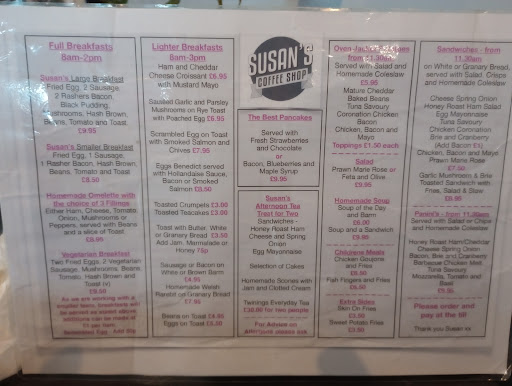 Full Breakfasts
8am-2pm
Susan's Large Breakfast
Fried Egg, 2 Sausage,
2 Rashers Bacon,
Black Pudding,
Mushrooms, Hash Brown,
Beans, Tomato and Toast
£9.95
Susan's Smaller Breakfast
Fried Egg, 1 Sausage,
1 Rasher Bacon, Hash Brown,
Beans, Tomato and Toast
£8.50
Homemade Omelette with
the choice of 3 Fillings
Either Ham, Cheese, Tomato
Onion, Mushrooms or
Peppers, served with Beans
and a slice of Toast
£8.95
Vegetarian Breakfast
Two Fried Eggs, 2 Vegetarian
Sausage, Mushrooms, Beans,
Tomato, Hash Brown and
Toast (v)
£9.50
As we are working with a
Lighter Breakfasts
8am-3pm
Ham and Cheddar
Cheese Croissant £6.95
with Mustard Mayo
Sauteed Garlic and Parsley
Mushrooms on Rye Toast
with Poached Egg £6.95
Scrambled Egg on Toast
with Smoked Salmon and
Chives £7.95
Eggs Benedict served with
Hollandaise Sauce,
Bacon or Smoked
Salmon
Toasted Crumpets £3.00
Toasted Teacakes £3.00
Toast with Butter White
or Granary Bread £3.50
Add Jam, Marmalade or
Honey 75p
Sausage or Bacon on
White or Brown Barm
£4.95
Homemade Welsh
Rarebit on Granary Bread
£7.95
Beans on Toast £4.95
Eggs on Toast
SUSAN'S
COFFEE SHOP
The Best Pancakes
Served with
Fresh Strawberries
and Chocolate
or
Bacon, Blueberries and
Maple Syrup
£9.95
Susan's
Afternoon Tea
Treat for Two
Sandwiches -
Honey Roast Ham
Cheese and Spring
Onion
Egg Mayonnaise
Selection of Cakes
Homemade Scones with
Jam and Clotted Cream
Twinings Everyday Tea
£30.00 for two people
For Advice on
Oven Jacket
Served with Salad and
Homemade Coleslaw
Mature Cheddar
Baked Beans
Tuna Savoury
Coronation Chicken
Bacon
Chicken, Bacon and
Mayo
Toppings £1.50 each
Salad
Prawn Marie Rose or
Feta and Olive
£9.95
Homemade Soup
Soup of the Day
and Barm
£6.00
Soup and a Sandwich
£9.95
Childrens Meals
Chicken Goujons
and Fries
£6.50
Fish Fingers and Fries
£6.50
Extra Sides
Skin On Fries
£3.50
Sweet Potato Fries
£3.50
Sandwiches - from
11.30am
on White or Granary Bread,
served with Salad, Crisps
and Homemade Coleslaw
Cheese Spring Onion
Honey Roast Ham Salad
Egg Mayonnaise
Tuna Savoury
Chicken Coronation
Brie and Cranberry
(Add Bacon £1)
Chicken, Bacon and Mayo
Prawn Marie Rose
£7.50
Garlic Mushrooms & Brie
Toasted Sandwich with
Fries, Salad & Slaw
£8.95
Panini's - from 11.30am
served with Salad or Chips
and Homemade Coleslaw
Honey Roast Ham/Cheddar
Cheese Spring Onion
Bacon, Brie and Cranberry
Barbecue Chicken Melt
Tuna Savoury
Mozzarella, Tomato and
Basil
£8.95
Please order and
pay at the till
Thank you Susan xx